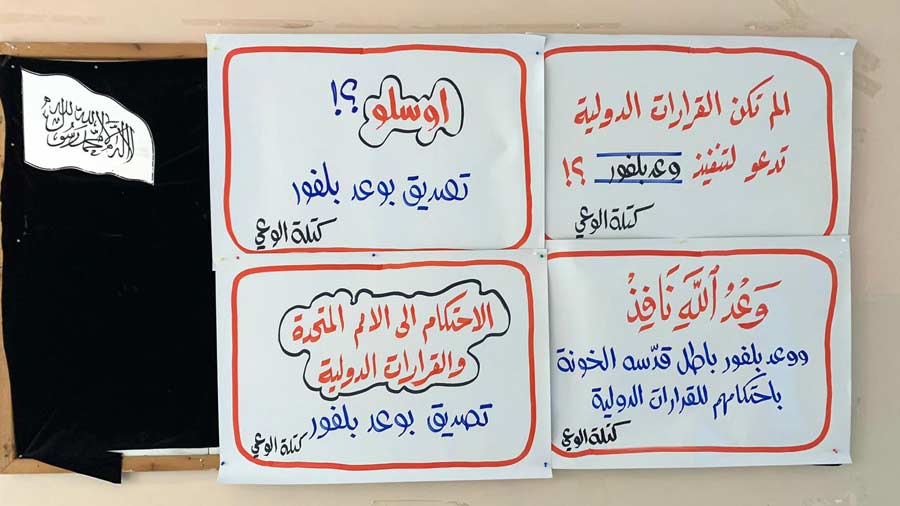 الم تكن القرارات الدولية
تدعو لتنفيذ وعد بلفور ؟!
كتلة الوعي
اوسلو ؟!
تصديق بوعد بلفور
كتلة الوعي
لا إله إلا الله محمد رسول الله
وَعْدُ ٱللَّهِ نَافِذْ
ووعد بلفور باطل قدّسه الخونة
باحتكامهم للقرارات الدولية
كتلة الوعي
الاحتكام الى الامم المتحدة
والقرارات الدولية
تصديق بوعد بلفور
كتلة الوعي